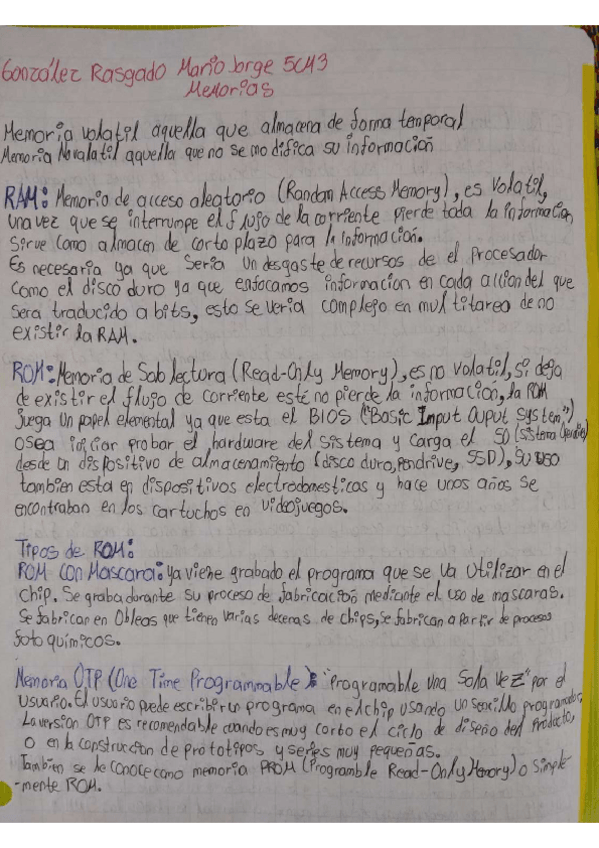 González Rasgado Mario Jorge 5CM3
Memorias
Memoria volatil aquella que almacena de forma temporal
Memoria No volatil aquella que no se modifica su información
RAM: Memoria de acceso aleatorio (Randon Access Memory), es Volatil,
una vez que se interrumpe el flujo de la corriente pierde toda la informacion
Sirve como almacen de corto plazo para la información.
Es necesaria ya que seria un desgaste de recursos de el Procesador
como el disco duro ya que enfocamos informacion en cada accion del que
sera traducido a bits, esto se veria complejo en multitarea de no
existir la RAM.
ROM: Memoria de Solo lectura (Read-Only Memory), es no volatil, si deja
de existir el flujo de corriente esté no pierde la información, la ROM
juega un papel elemental ya que esta el BIOS ("Basic Input Ouput System")
osea iniciar probar el hardware del sistema y carga el SO (Sistema Operativo)
desde un dispositivo de almacenamiento (disco duro, Pendrive, SSD), su uso
tambien esta en dispositivos electrodomesticas y hace unos años se
encontraban en los cartuchos en videojuegos.
Tipos de ROM:
ROM con Mascara: Ya viene grabado el programa que se va utilizar en el
chip. Se graba durante su proceso de fabricación mediante el uso de mascaras.
Se fabrican en Obleas que tienen varias decenas de chips, se fabrican a partir de procesos
foto químicos.
Memoria OTP (One Time Programmable): "Programable una Sola vez" por el
usuario. El usuario puede escribir un programa en el chip usando un sencillo programador,
La version OTP es recomendable cuando es muy corto el ciclo de diseño del Producto,
o en la construccion de prototipos y series muy pequeñas.
Tambien se le conoce como memoria PROM (Programble Read-Only Memory) o simple-
-mente ROM.